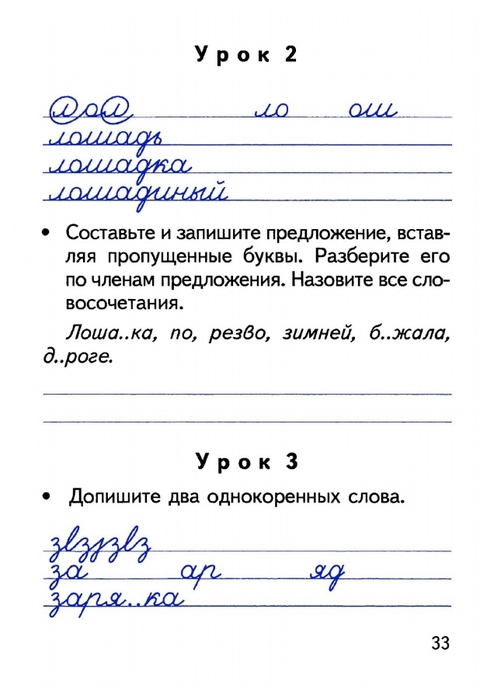 Урок 2
лол ло ош
лошадь
лошадка
лошадиный
• Составьте и запишите предложение, встав-
ляя пропущенные буквы. Разберите его
по членам предложения. Назовите все сло-
восочетания.
Лоша..ка, по, резво, зимней, б..жала,
д..роге.
Урок 3
• Допишите два однокоренных слова.
звзрзвз
за ар яд
заря..ка
33